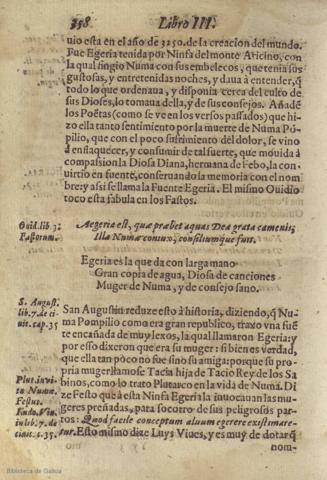 358. Libro III.
uio esta en el año de 3250. de la creacion del mundo.
Fue Egeria tenida por Ninfa del monte Aricino, con
la qual fingio Numa con sus embelecos, que tenia sus
gustosas, y entretenidas noches, y daua à entender, q̃
todo lo que ordenaua, y disponia cerca del culto de
sus Dioses, lo tomaua della, y de sus consejos. Añadẽ
los Poëtas (como se ve en los versos passados) que hi-
zo ella tanto sentimiento por la muerte de Numa Pō
pilio, que con el poco sufrimiento del dolor, se vino
à enflaquecer, y consumir de tal suerte, que mouida à
compassion la Diosa Diana, hermana de Febo, la con-
uirtio en fuente, conseruando la memoria con el nom
bre: y assi se llama la Fuente Egeria. El mismo Ouidio
toco esta fabula en los Fastos.
Ouid. lib. 3.
Fastorum.
Aegeria est, quæ præbet aquas Dea grata camenis;
Illa Numæ coniux, consiliumque fuit.
Egeria es la que da con larga mano
Gran copia de agua, Diosa de canciones
Muger de Numa, y de consejo sano.
S. August.
lib. 7. de ci
uit. cap. 35
San Augustin reduze esto à historia, diziendo, q̃ Nu
ma Pompilio como era gran republico, traxo vna fuẽ
te encañada de muy lexos, la qual llamaron Egeria: y
por esso dixeron que era su muger: si bien es verdad,
que ella tan poco no fue sino su amiga: porque su pro
pria muger llamose Tacia hija de Tacio Rey de los Sa
binos, como lo trato Plutarco en la vida de Numa. Di
ze Festo que à esta Ninfa Egeria la inuocauan las mu
geres preñadas, para socorro de sus peligrosos par-
tos: Quod facile conceptum aluum egerere existimare-
tur. Esto mismo dize Luys Viues, y es muy de dotar q̃
Plut. in vi
ta Numæ.
Festus.
Ludo. Viu.
in lib. 7. de
ciuit. c. 35.
nom-
Biblioteca de Galicia